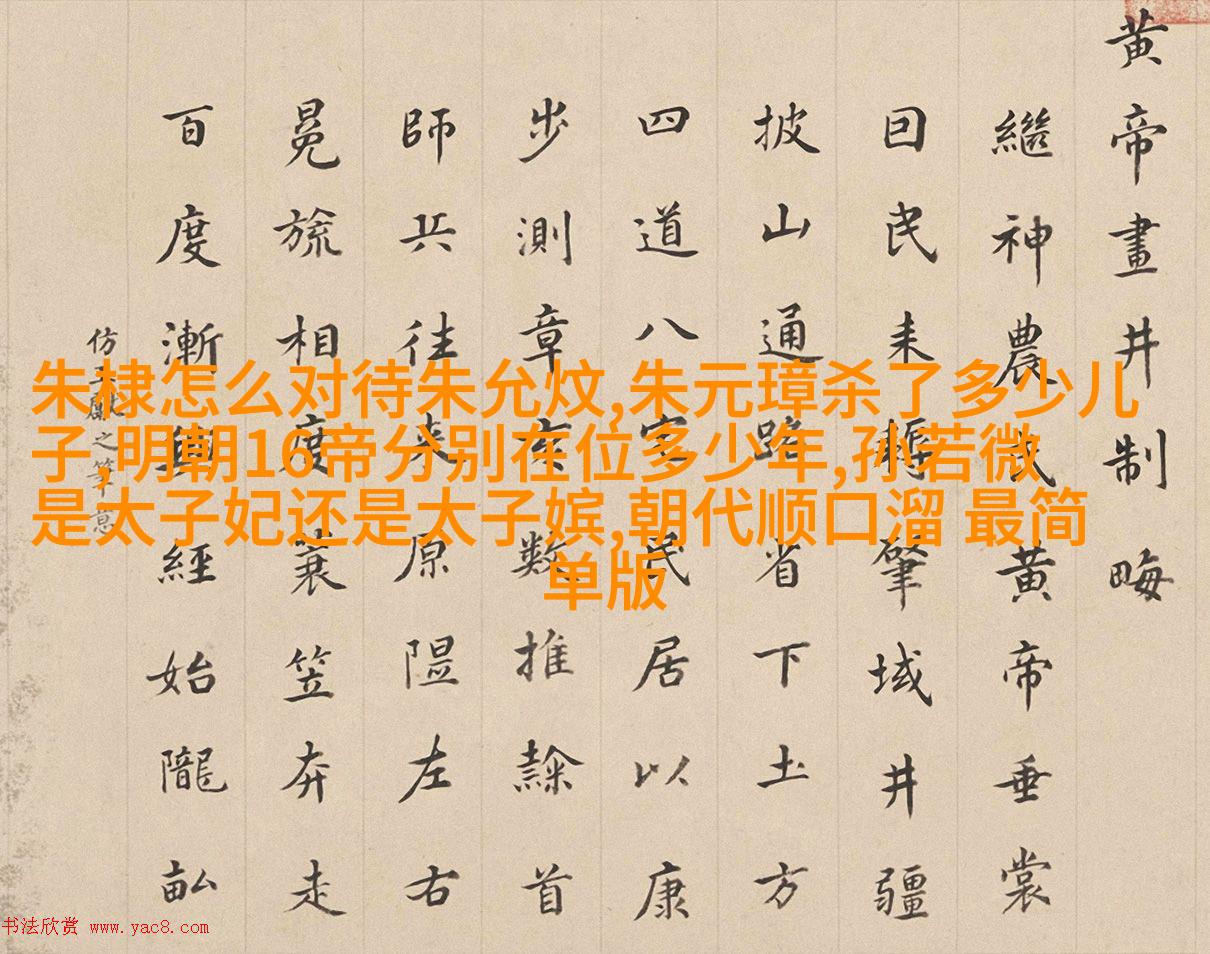 黄帝畫井制畮
繼神農氏黄帝垂裳
囙民耒耨肇域井疆
披山通路省下土方
四道八家民居以康
步測章亥數推隸首
師兵往来原隰左右
冕旒相度蓑笠奔走
百度漸興經始隴畆
仿王獻之筆意
朱棣怎么对待朱允炆,朱元璋杀了多少儿
子 明朝16帝分别在位多少年,孙若微
是太子妃还是太子嫔,朝代顺口溜 最简
单版
书法欣赏 www.yac8.com